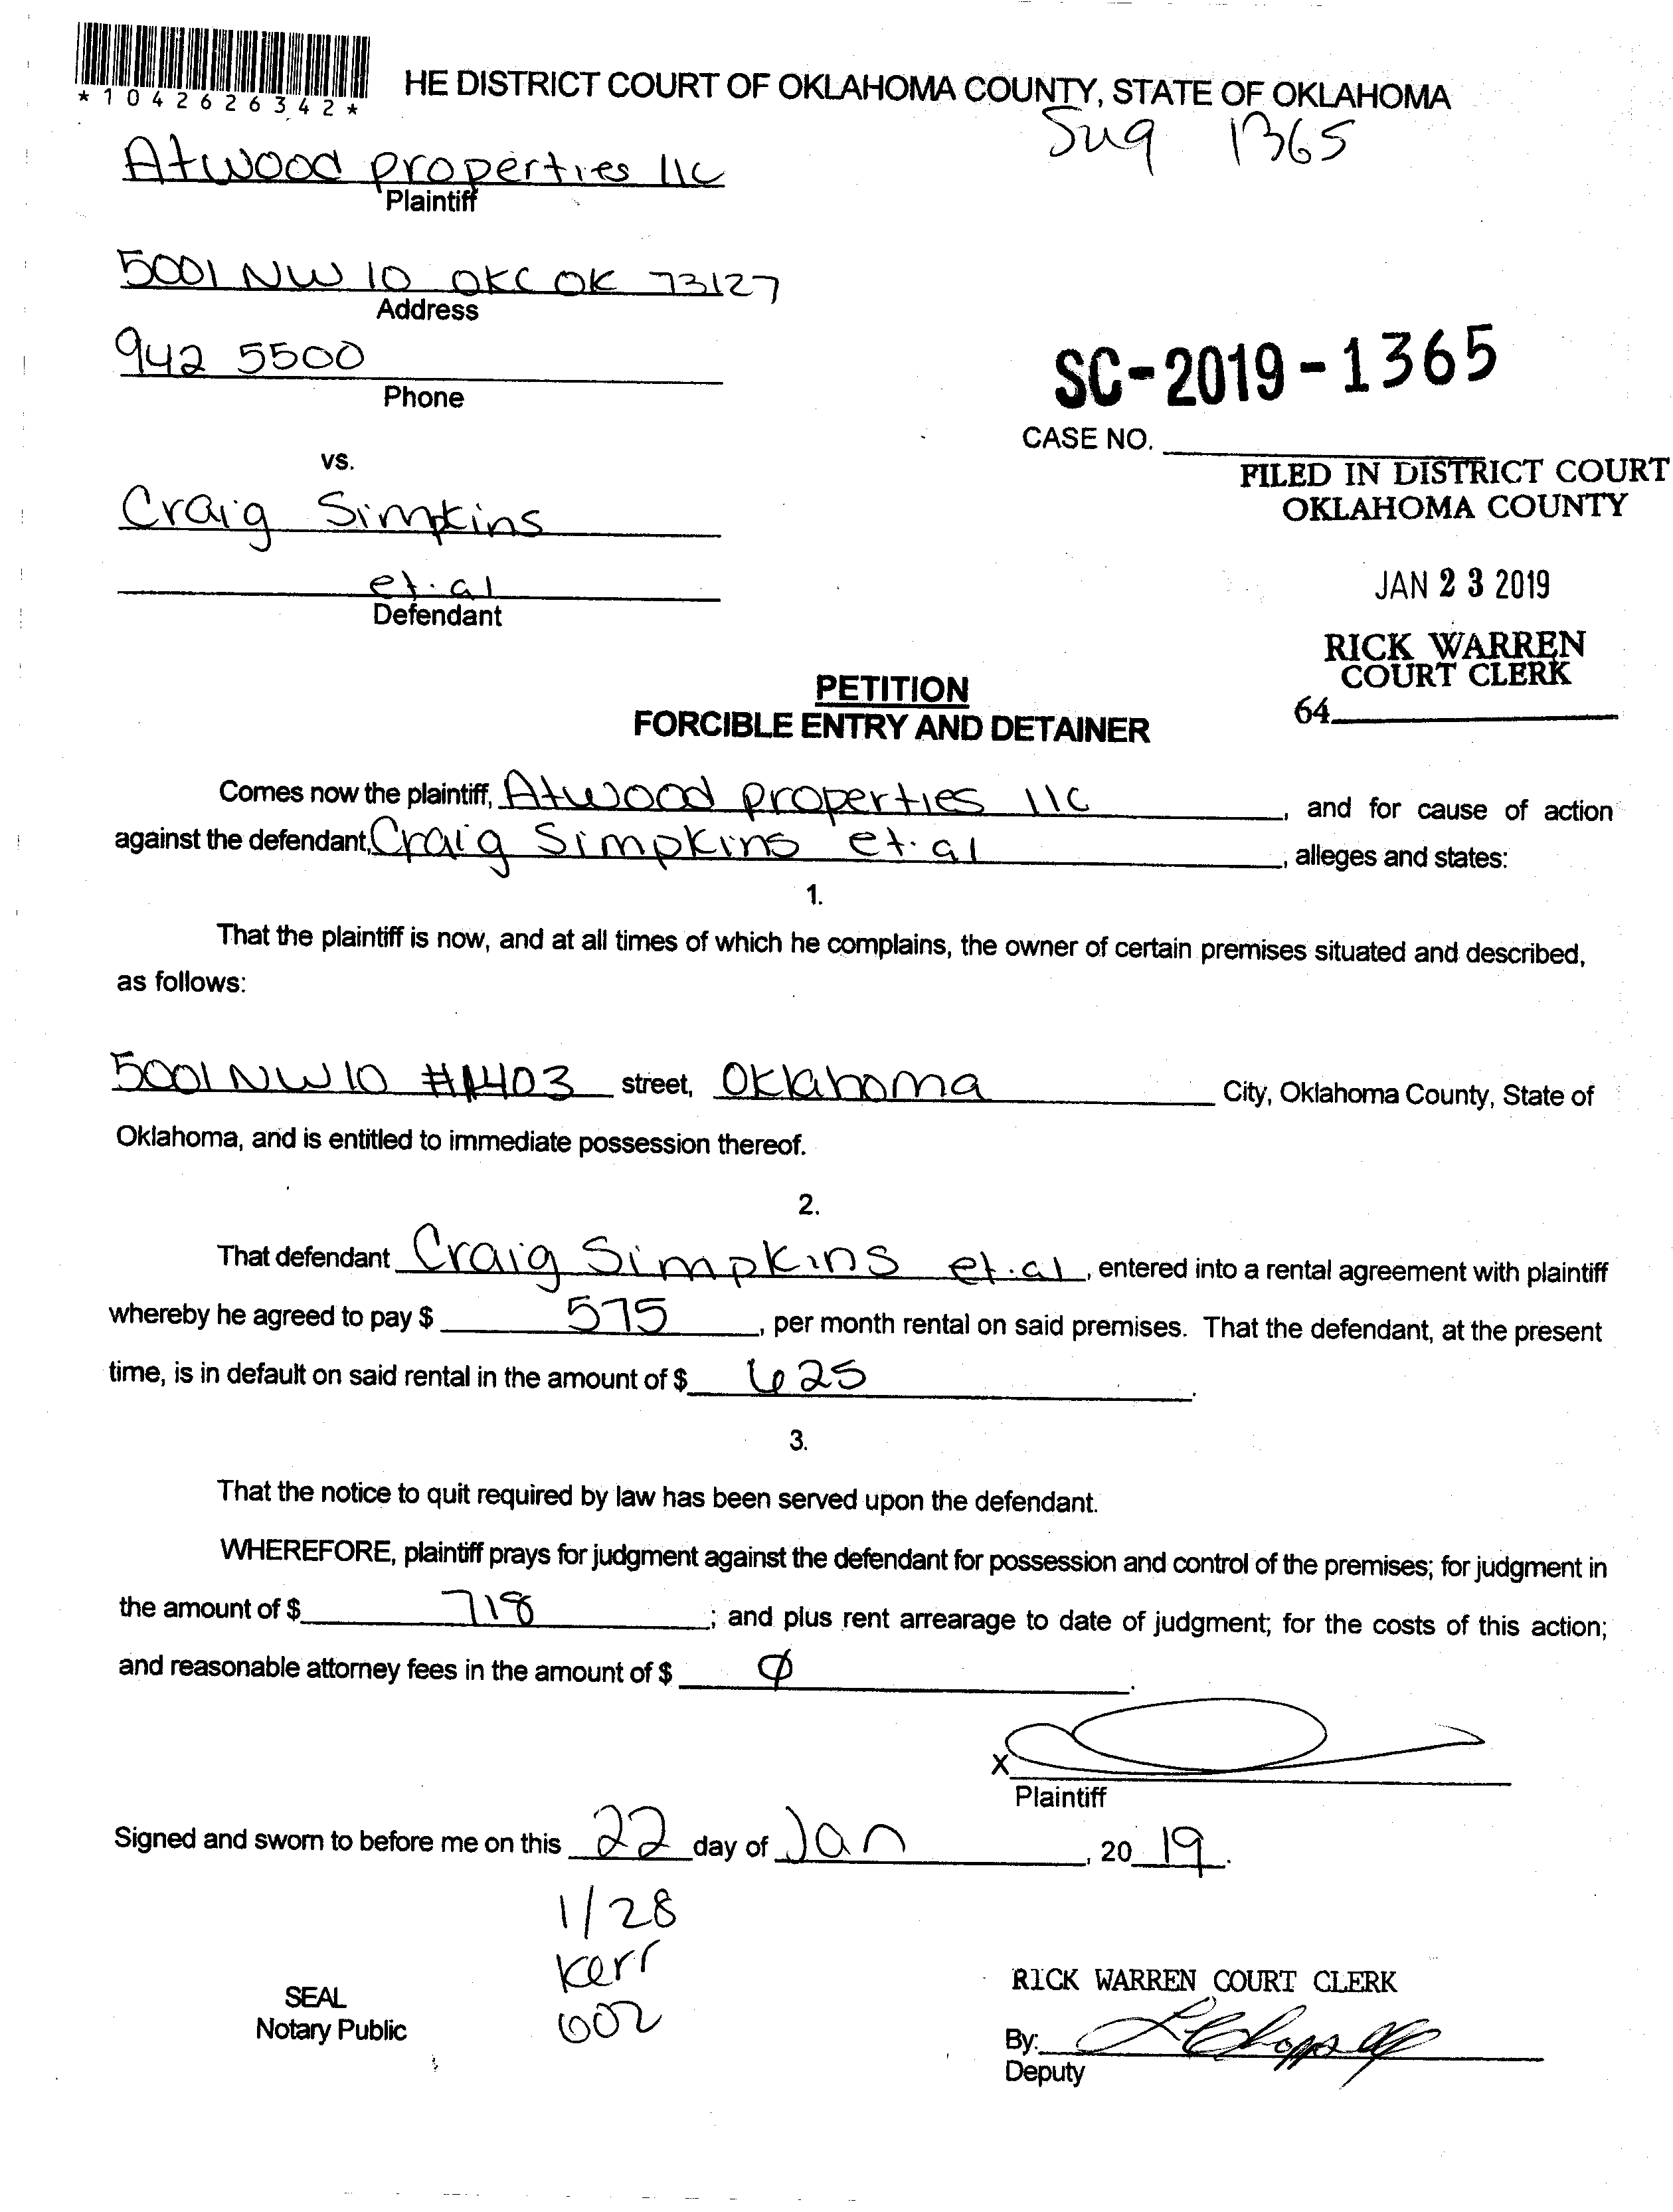 *1042626342*
HE DISTRICT COURT OF OKLAHOMA COUNTY, STATE OF OKLAHOMA
1365
Atwood properties llc
Plaintiff
5001 NW 10 OKC OK 73127
Address
942 5500
Phone
SC-2019-1365
CASE NO.
vs.
FILED IN DISTRICT COURT
OKLAHOMA COUNTY
Craig Simpkins
et.al
Defendant
JAN 23 2019
RICK WARREN
COURT CLERK
64
PETITION
FORCIBLE ENTRY AND DETAINER
Comes now the plaintiff, Atwood properties llc, and for cause of action
against the defendant, Craig Simpkins et.al, alleges and states:
1.
That the plaintiff is now, and at all times of which he complains, the owner of certain premises situated and described,
as follows:
5001 NW 10 #1403 street, Oklahoma City, Oklahoma County, State of
Oklahoma, and is entitled to immediate possession thereof.
2.
That defendant Craig Simpkins et.al, entered into a rental agreement with plaintiff
whereby he agreed to pay $ 575, per month rental on said premises. That the defendant, at the present
time, is in default on said rental in the amount of $ 625.
3.
That the notice to quit required by law has been served upon the defendant.
WHEREFORE, plaintiff prays for judgment against the defendant for possession and control of the premises; for judgment in
the amount of $ 718; and plus rent arrearage to date of judgment; for the costs of this action;
and reasonable attorney fees in the amount of $ Ø.
X
Plaintiff
Signed and sworn to before me on this 22 day of Jan, 20 19.
1/28
Kerr
602
SEAL
Notary Public
RICK WARREN COURT CLERK
By:
Deputy